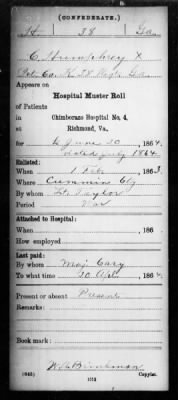 (CONFEDERATE.)
H 38 Ga
C Humphrey X
Pvt. Co. 38 Reg't Ga
Appears on
Hospital Muster Roll
of Patients
in Chimborazo Hospital No. 4,
at Richmond, Va.,
for to June 30, 186 4
dated July 1864
Enlisted:
When 1 , 186 3.
Where Cumming
By whom Lt. Taylor
Period War
Attached to Hospital:
When , 186 .
How employed
Last paid:
By whom Maj Cary
To what time 30 , 186 4
Present or absent Present
Remarks:
Book mark:
(643) Copyist.